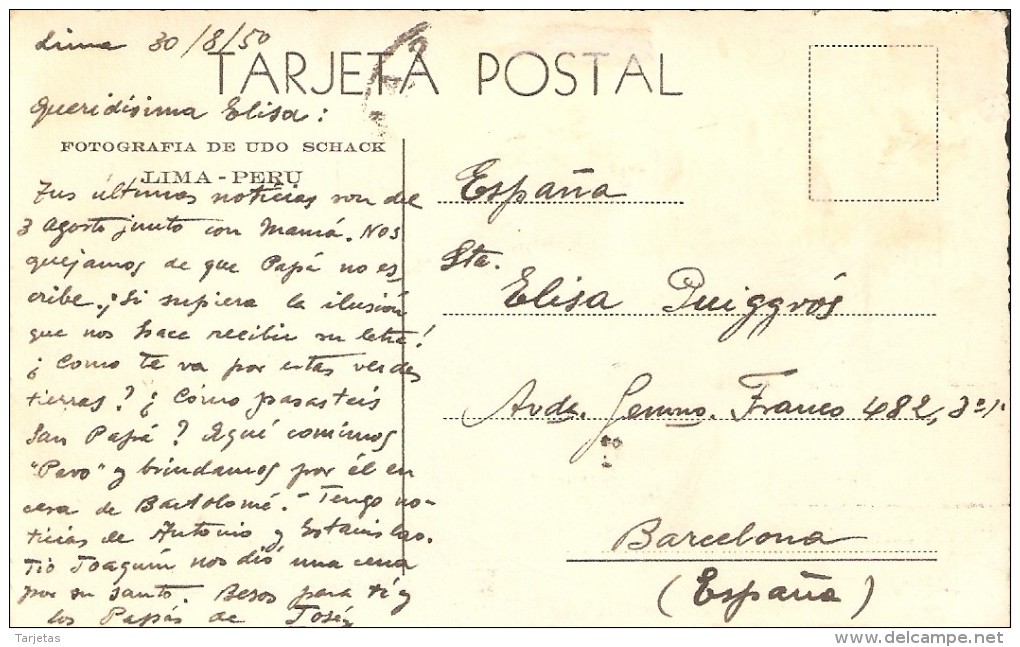 Lima 30/8/50
TARJETA POSTAL
Queridísima Elisa:
FOTOGRAFIA DE UDO SCHACK
LIMA - PERU
Tus últimas noticias son del
3 Agosto junto con Mamá. Nos
quejamos de que Papá no es-
cribe. ¡Si supiera la ilusión
que nos hace recibir su letra!
¿Como te va por estas verdes
tierras? ¿Cómo pasasteis
San Papá? Aquí comimos
"Pavo" y brindamos por él en
casa de Bartolomé.- Tengo no-
ticias de Antonio y Estanislao.
Tío Joaquín nos dió una cena
por su santo. Besos para tí y
los Papás de José
España
Sta.
Elisa Puiggrós
Avda. Genmo. Franco 482, 3º 1ª
Barcelona
(España)
Tarjetas
www.delcampe.net